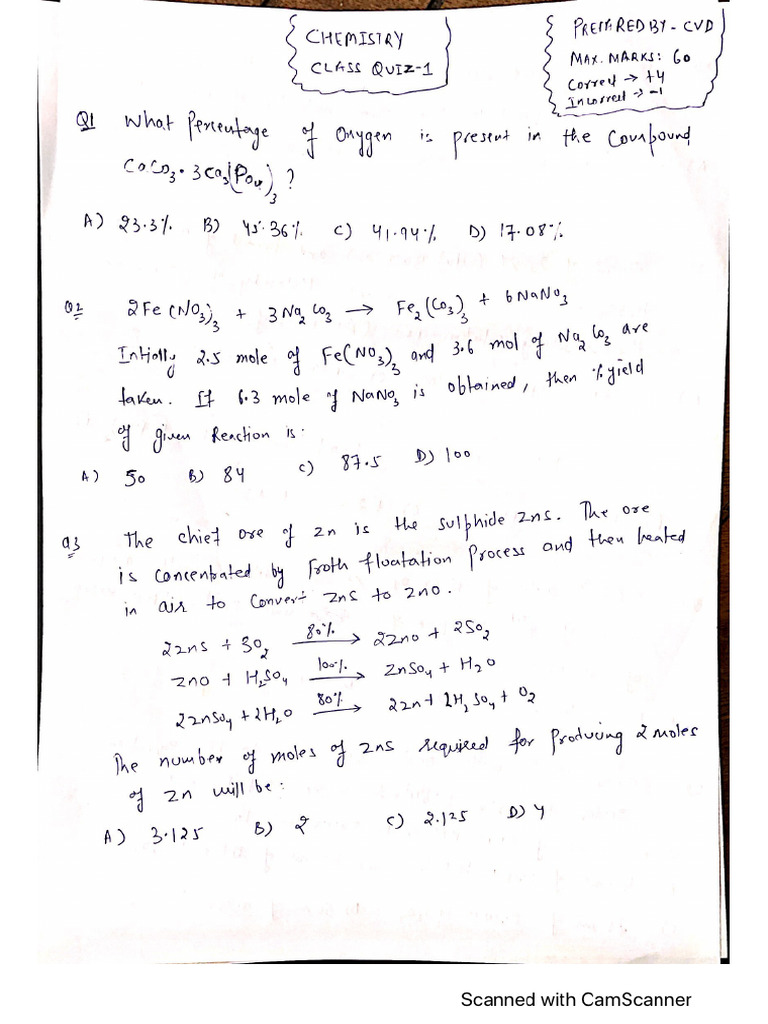 CHEMISTRY
CLASS QUIZ-1
PREPARED BY - CVD
MAX. MARKS: 60
Correct → +4
Incorrect → -1
Q1 What Percentage of Oxygen is present in the Compound
CaCO₃·3Ca₃(PO₄)₃?
A) 23.3% B) 45.36% C) 41.94% D) 17.08%
Q2 2Fe(NO₃)₃ + 3Na₂CO₃ → Fe₂(CO₃)₃ + 6NaNO₃
Intially 2.5 mole of Fe(NO₃)₃ and 3.6 mol of Na₂CO₃ are
taken. If 6.3 mole of NaNO₃ is obtained, then % yield
of given Reaction is:
A) 50 B) 84 C) 87.5 D) 100
Q3 The chief ore of Zn is the sulphide ZnS. The ore
is concentrated by froth floatation Process and then heated
in air to convert ZnS to ZnO.
2ZnS + 3O₂ 80%→ 2ZnO + 2SO₂
ZnO + H₂SO₄ 100%→ ZnSO₄ + H₂O
2ZnSO₄ + 2H₂O 80%→ 2Zn + 2H₂SO₄ + O₂
The number of moles of ZnS required for Producing 2 moles
of Zn will be:
A) 3.125 B) 2 C) 2.125 D) 4
Scanned with CamScanner